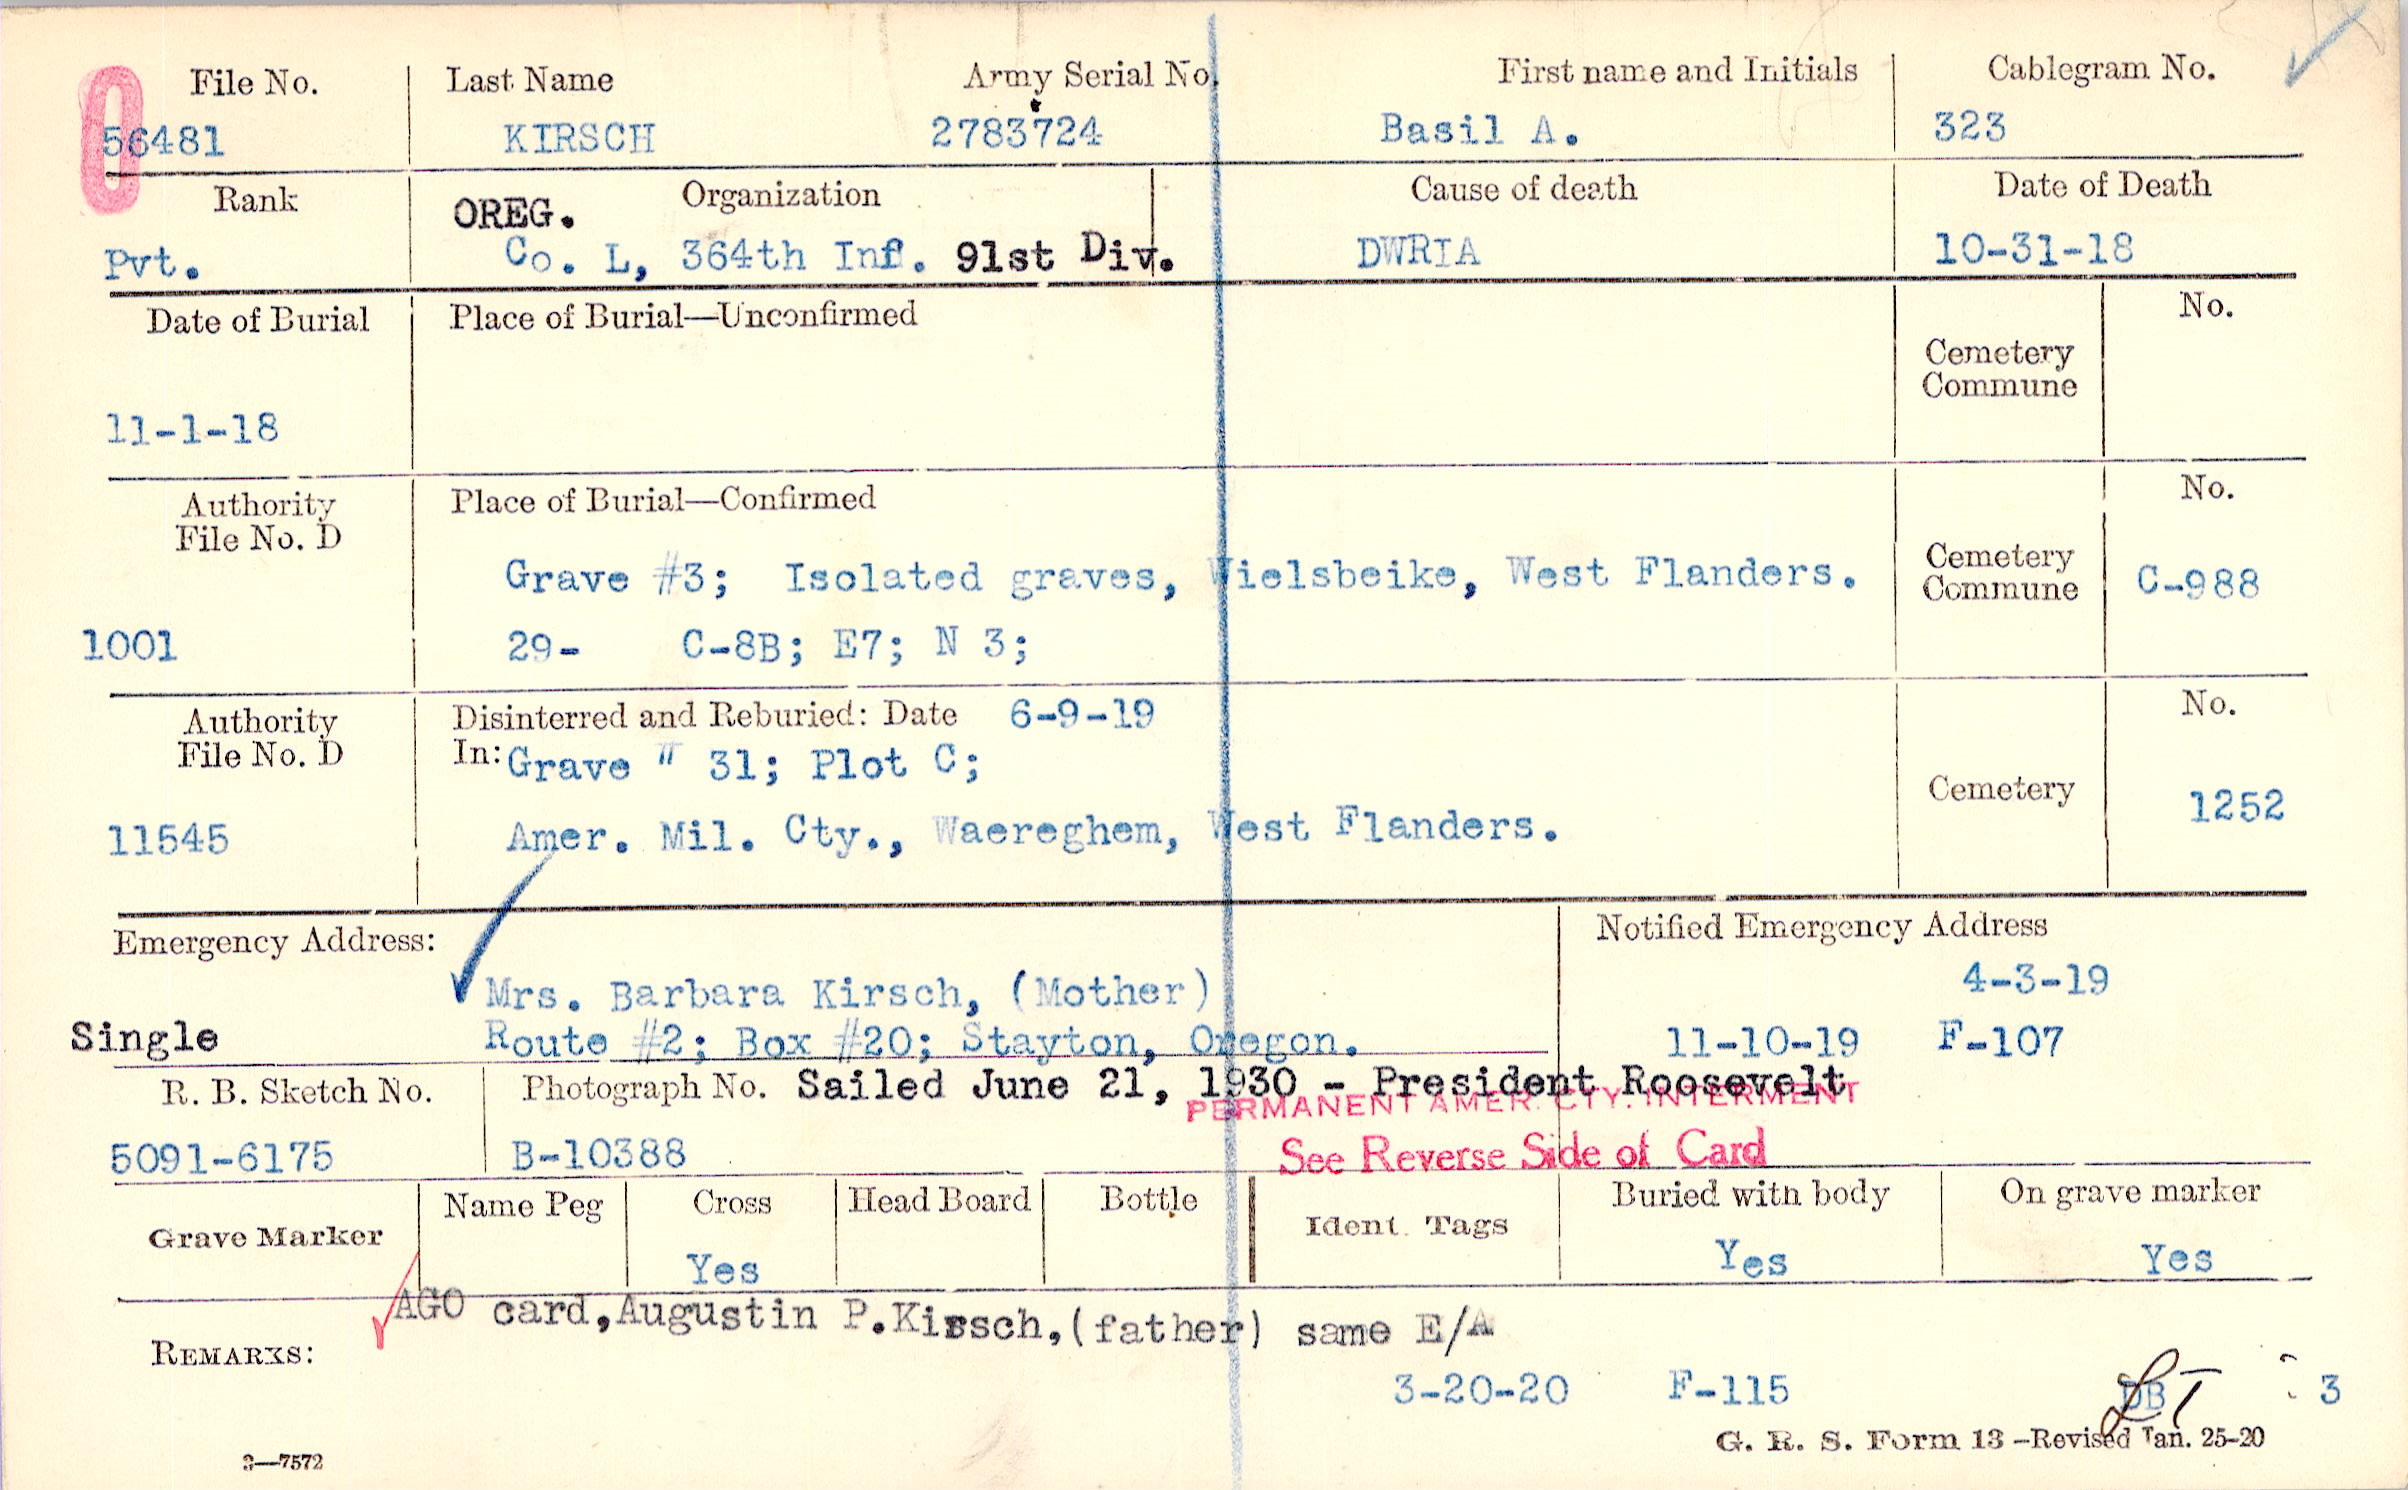 File No. Last Name Army Serial No. First name and Initials Cablegram No.
0
56481 KIRSCH 2783724 Basil A. 323
Rank OREG. Organization Cause of death Date of Death
Pvt. Co. L, 364th Inf. 91st Div. DWRIA 10-31-18
Date of Burial Place of Burial—Unconfirmed Cemetery Commune No.
11-1-18
Authority File No. D Place of Burial—Confirmed No.
Grave #3; Isolated graves, Wielsbeike, West Flanders. Cemetery Commune C-988
1001 29- C-8B; E7; N 3;
Authority File No. D Disinterred and Reburied: Date 6-9-19 No.
In: Grave " 31; Plot C; Cemetery 1252
11545 Amer. Mil. Cty., Waereghem, West Flanders.
Emergency Address: Notified Emergency Address
Mrs. Barbara Kirsch, (Mother) 4-3-19
Single Route #2; Box #20; Stayton, Oregon. 11-10-19 F-107
R. B. Sketch No. Photograph No. Sailed June 21, 1930 - President Roosevelt
PERMANENT AMER. CTY. INTERMENT
5091-6175 B-10388 See Reverse Side of Card
Grave Marker Name Peg Cross Head Board Bottle Ident. Tags Buried with body On grave marker
Yes Yes Yes
AGO card, Augustin P. Kirsch, (father) same E/A
REMARKS:
3-20-20 F-115 DB 3
G. R. S. Form 13—Revised Jan. 25-20
3—7572